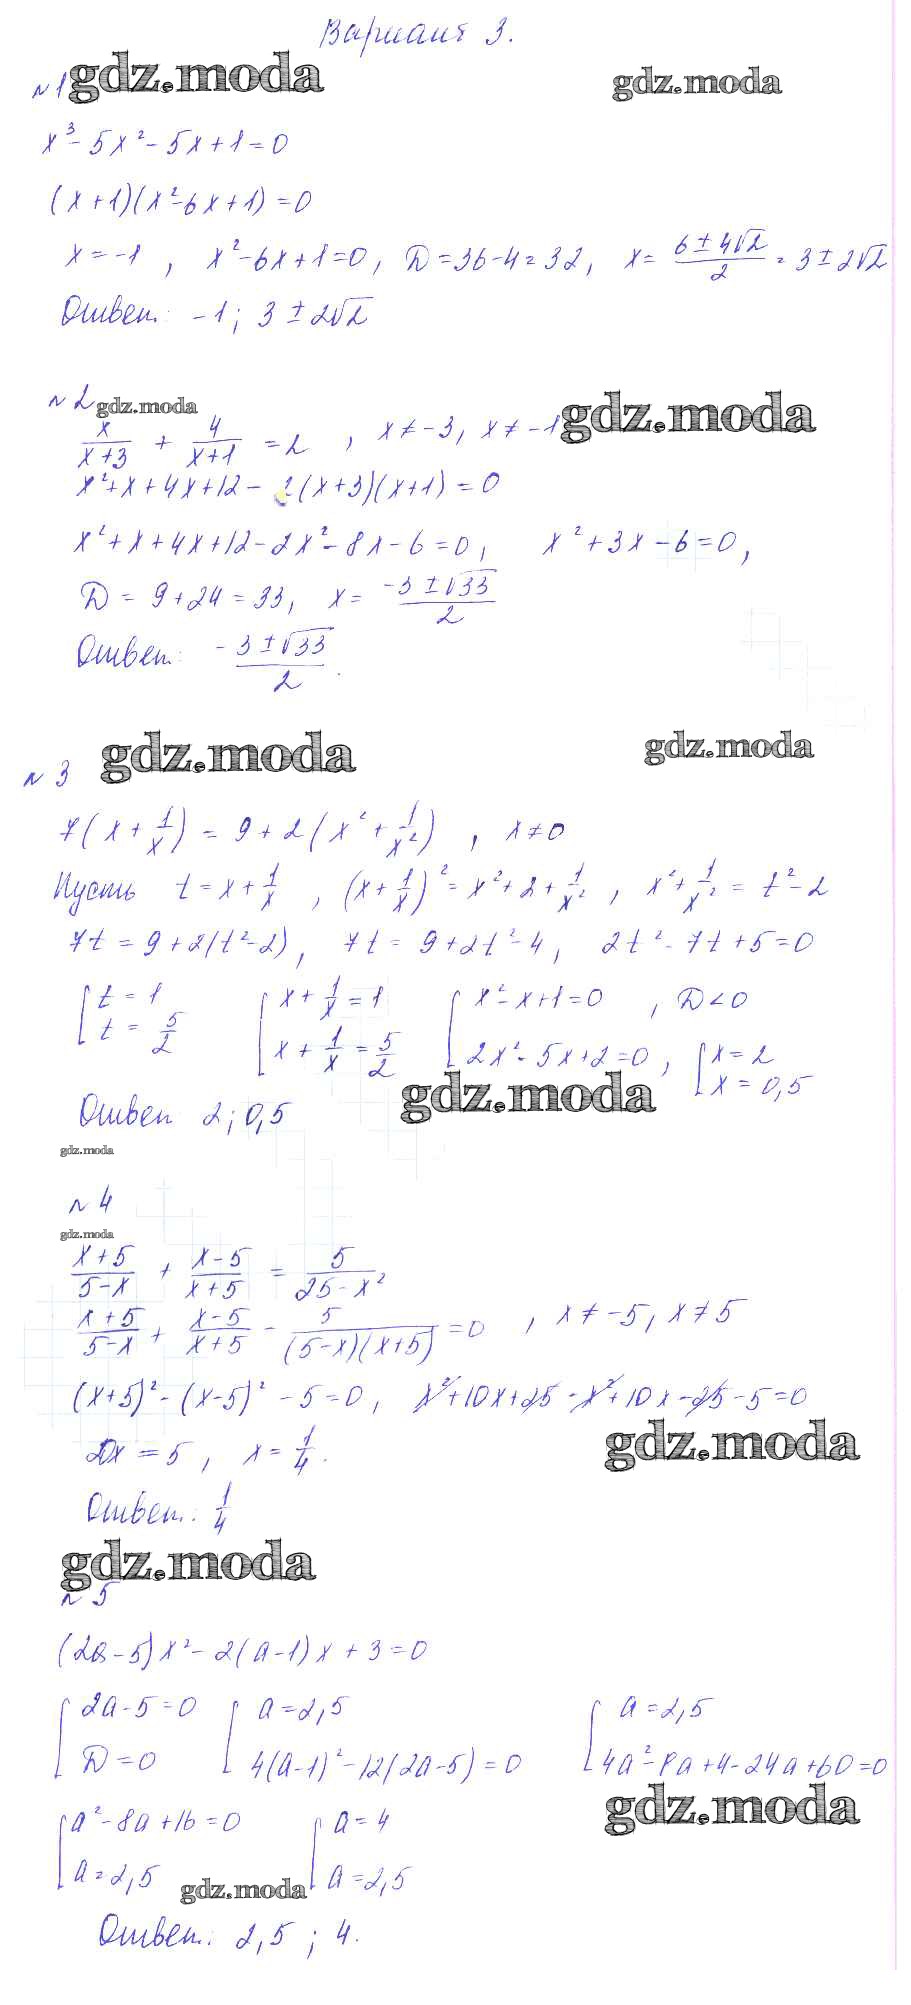 Вариант 3.
№1 gdz.moda gdz.moda
x³ - 5x² - 5x + 1 = 0
(x + 1)(x² - 6x + 1) = 0
x = -1 , x² - 6x + 1 = 0, D = 36 - 4 = 32, x = (6 ± 4√2)/2 = 3 ± 2√2
Ответ: -1; 3 ± 2√2
№2 gdz.moda
x/(x+3) + 4/(x+1) = 2 , x ≠ -3, x ≠ -1 gdz.moda
x² + x + 4x + 12 - 2(x+3)(x+1) = 0
x² + x + 4x + 12 - 2x² - 8x - 6 = 0, x² + 3x - 6 = 0,
D = 9 + 24 = 33, x = (-3 ± √33)/2
Ответ: (-3 ± √33)/2.
№3 gdz.moda gdz.moda
7(x + 1/x) = 9 + 2(x² + 1/x²) , x ≠ 0
Пусть t = x + 1/x , (x + 1/x)² = x² + 2 + 1/x² , x² + 1/x² = t² - 2
7t = 9 + 2(t² - 2), 7t = 9 + 2t² - 4, 2t² - 7t + 5 = 0
[ t = 1 [ x + 1/x = 1 [ x² - x + 1 = 0 , D < 0
t = 5/2 x + 1/x = 5/2 2x² - 5x + 2 = 0, [ x = 2
x = 0,5
Ответ 2; 0,5 gdz.moda
gdz.moda
№4
gdz.moda
(x+5)/(5-x) + (x-5)/(x+5) = 5/(25-x²)
(x+5)/(5-x) + (x-5)/(x+5) - 5/((5-x)(x+5)) = 0 , x ≠ -5, x ≠ 5
(x+5)² - (x-5)² - 5 = 0, x² + 10x + 25 - x² + 10x - 25 - 5 = 0
20x = 5 , x = 1/4. gdz.moda
Ответ: 1/4
gdz.moda
№5
(2a - 5)x² - 2(a - 1)x + 3 = 0
[ 2a - 5 = 0 [ a = 2,5 [ a = 2,5
D = 0 4(a-1)² - 12(2a-5) = 0 4a² - 8a + 4 - 24a + 60 = 0
gdz.moda
[ a² - 8a + 16 = 0 [ a = 4
a = 2,5 gdz.moda a = 2,5
Ответ: 2,5 ; 4.